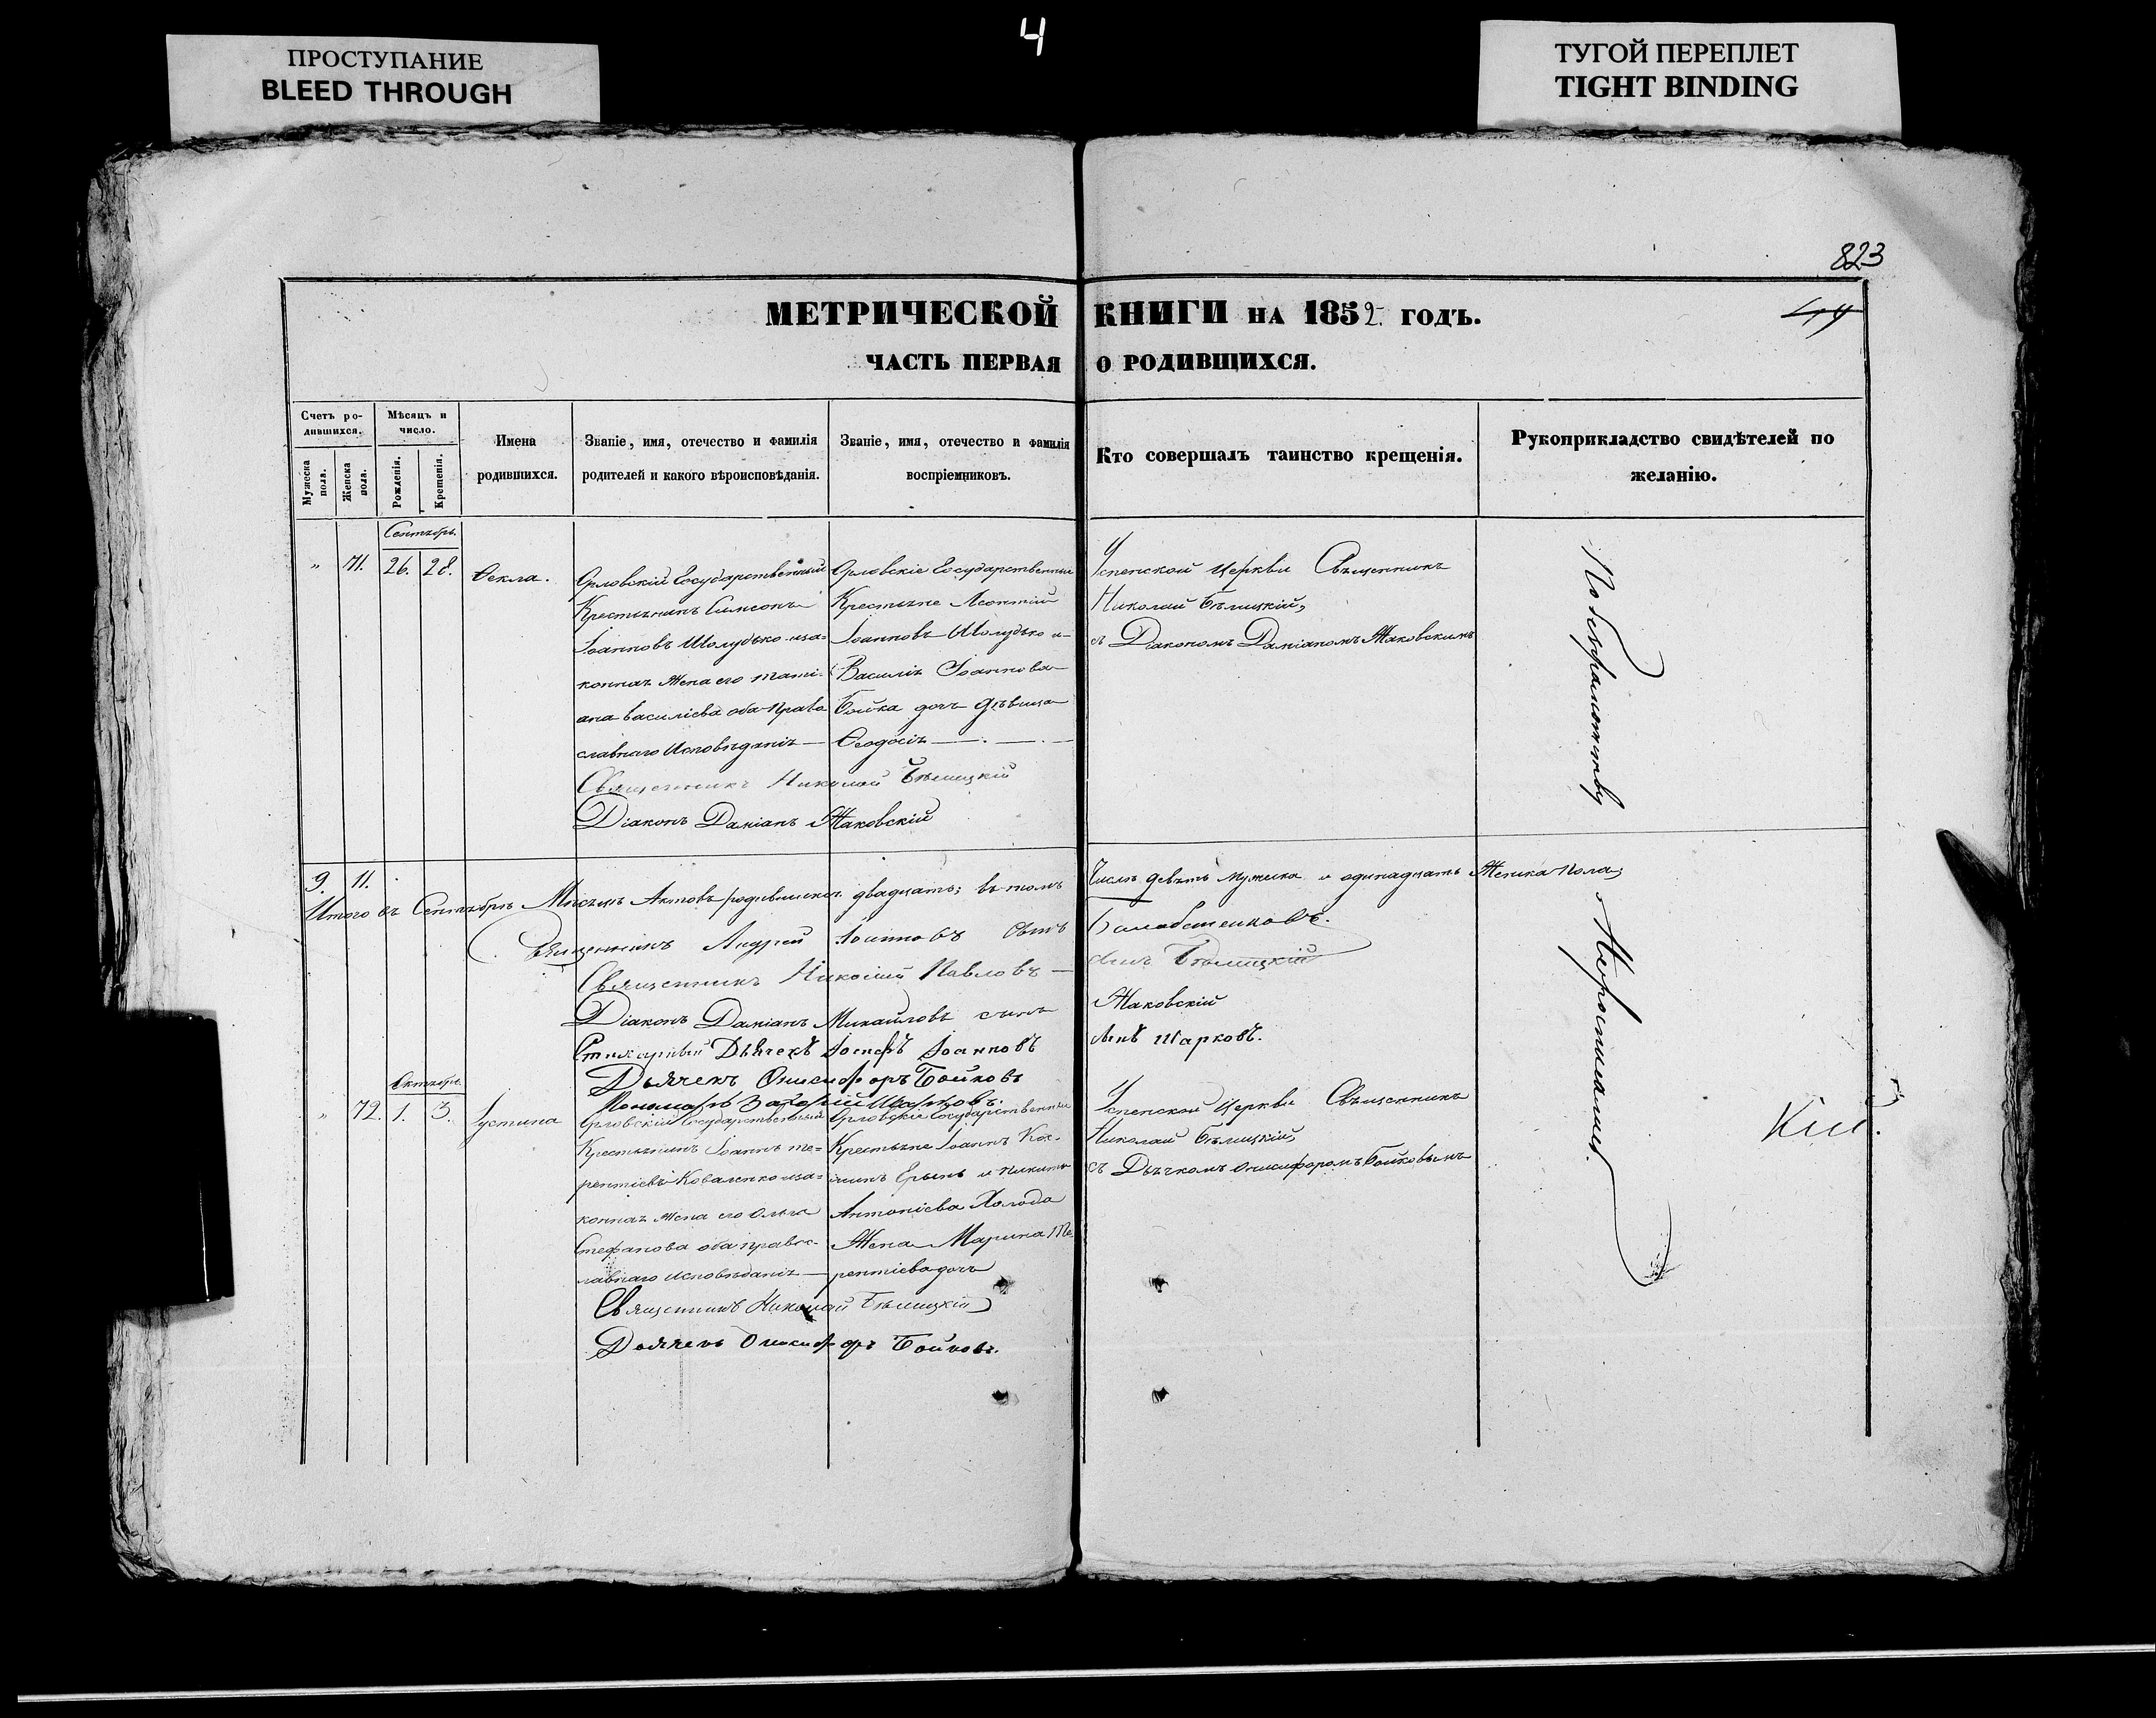 4
ПРОСТУПАНИЕ
BLEED THROUGH
ТУГОЙ ПЕРЕПЛЕТ
TIGHT BINDING
823
44
МЕТРИЧЕСКОЙ КНИГИ НА 1852 ГОДЪ.
ЧАСТЬ ПЕРВАЯ О РОДИВШИХСЯ.
Счетъ родившихся.
Мужеска пола.
Женска пола.
Мѣсяцъ и число.
Рожденія.
Крещенія.
Имена родившихся.
Званіе, имя, отечество и фамилія родителей и какого вѣроисповѣданія.
Званіе, имя, отечество и фамилія воспріемниковъ.
Кто совершалъ таинство крещенія.
Рукоприкладство свидѣтелей по желанію.
Сентябрь.
" 71. 26. 28. Ѳекла.
Орловскій Государственный
Крестьянинъ Симеонъ
Іоанновъ Шолудько-зa-
конная Жена его тати-
ана василіева оба Право
славнаго Исповѣданія —
Орловскіе Государственные
Крестьяне Леонтій
Іоанновъ Шолудько и-
Василія Іоаннова
Бойка дочь дѣвица
Ѳеодосія — . — . —
Священникъ Николай Бѣлицкій
Діаконъ Даміанъ Жаковскій
Успенской Церкви Священникъ
Николай Бѣлицкій,
съ Діакономъ Даміаномъ Жаковскимъ
По безграмотству
Неросписались
9. 11.
Итого въ Сентябрѣ Мѣсяцѣ Актовъ родившихся двадцать; въ томъ Числѣ девять мужеска и одинадцать Женска пола;
Священникъ Андрей Іоанновъ сынъ
Священникъ Николай Павловъ — сынъ Бѣлицкій
Діаконъ Даміанъ Михайловъ сынъ Жаковскій
Стихарный Дьячекъ Іосифъ Іоанновъ сынъ Шарковъ.
Дьячекъ Онисифоръ Бойковъ
Пономарь Захарій Шарковъ.
Октябрь.
" 72. 1. 3. Іустина
Орловскій Государственный
Крестьянинъ Іоаннъ те=
рентіевъ Коваленко-за=
конная жена его Ольга
Стефанова оба правос-
лавнаго исповѣданія —
Орловскіе Государственные
Крестьяне Іоаннъ
и никиты
Антоніева Холода
Жена Марина Те
рентіева дочь
Священникъ Николай Бѣлицкій
Дьячекъ Онисифоръ Бойковъ.
Успенской Церкви Священникъ
Николай Бѣлицкій,
съ Дьячкомъ Онисифоромъ Бойковымъ